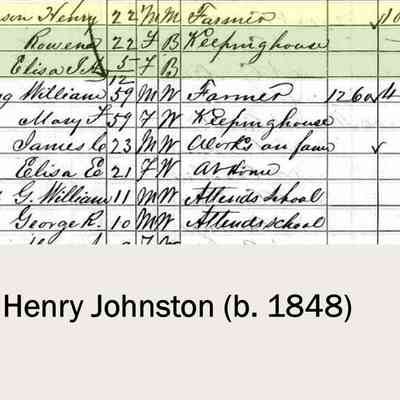 son Henry 22 M M Farmer
Rowena 22 F B Keeping house
Elisa 5/12 F B
William 59 M W Farmer 1260
Mary F 59 F W Keeping house
James C 23 M W Works on farm
Elisa E 21 F W At Home
G. William 11 M W Attends School
George R. 10 M W Attends school
Henry Johnston (b. 1848)